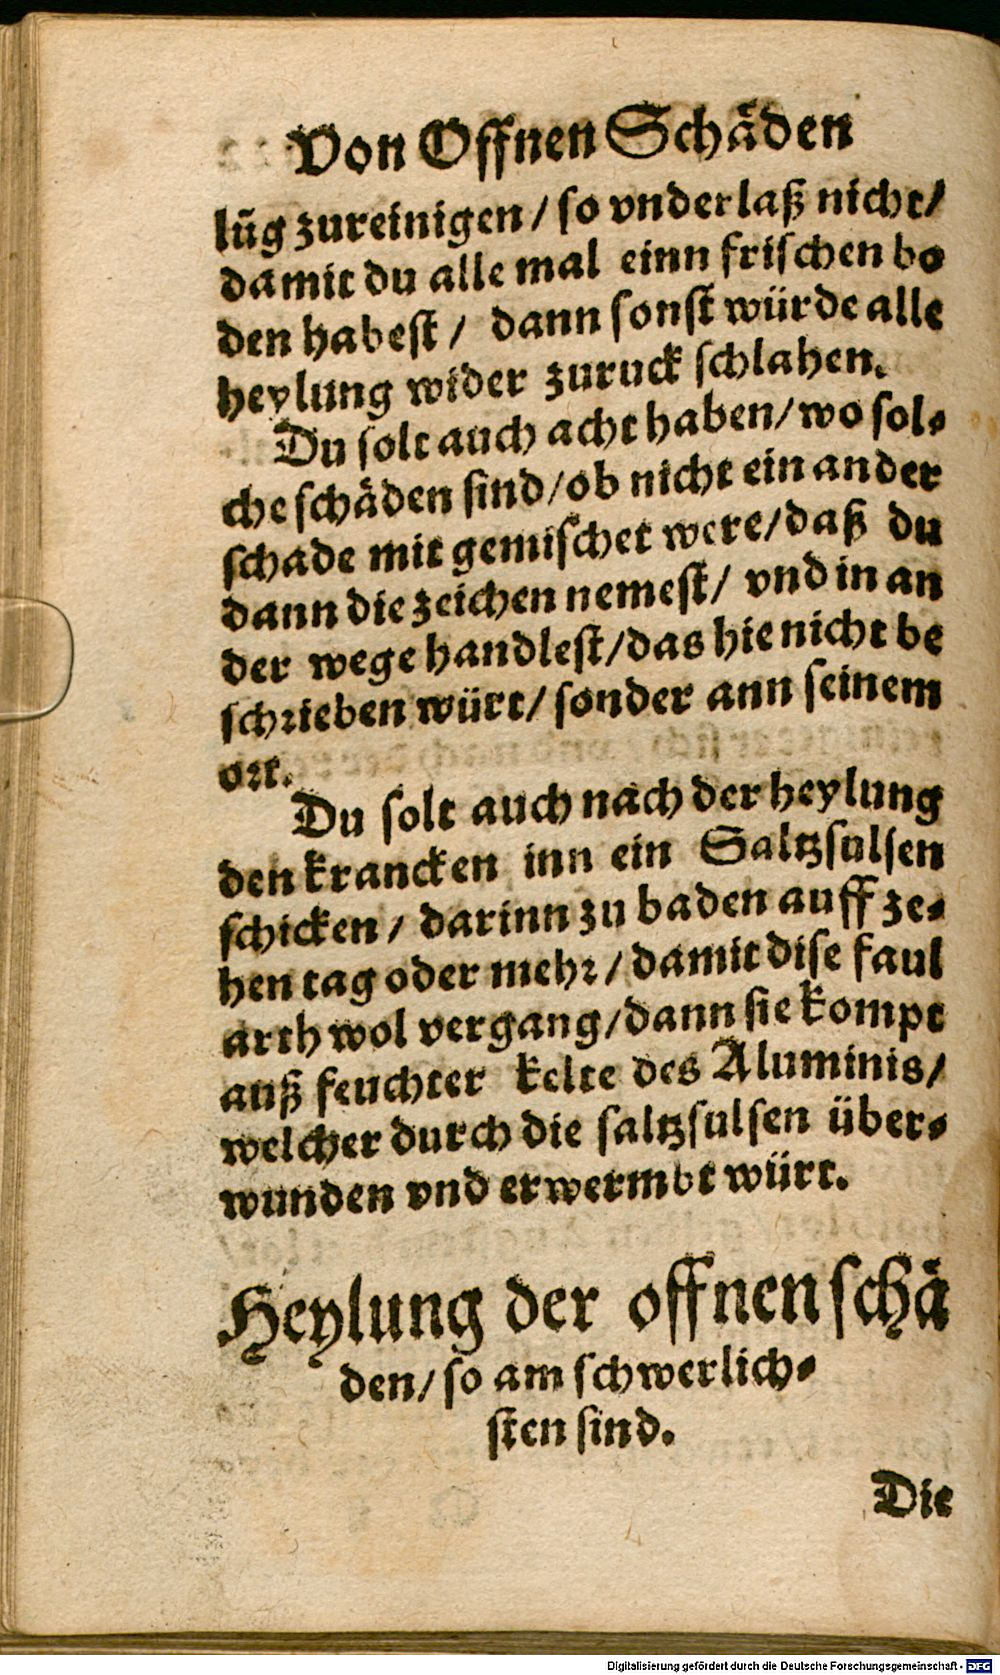 Von Offnen Schäden
lūg zureinigen / so vnderlaß nicht /
damit du alle mal einn frischen bo
den habest / dann sonst würde alle
heylung wider zuruck schlahen.
Du solt auch acht haben / wo sol⸗
che schäden sind / ob nicht ein ander
schade mit gemischet were / daß du
dann die zeichen nemest / vnd in an
der wege handlest / das hie nicht be
schrieben würt / sonder ann seinem
ort.
Du solt auch nach der heylung
den krancken inn ein Saltzsulsen
schicken / darinn zu baden auff ze⸗
hen tag oder mehr / damit dise faul
arth wol vergang / dann sie kompt
auß feuchter kelte des Aluminis /
welcher durch die saltzsulsen über⸗
wunden vnd erwermbt würt.
Heylung der offnen schä
den / so am schwerlich⸗
sten sind.
Die
Digitalisierung gefördert durch die Deutsche Forschungsgemeinschaft - DFG